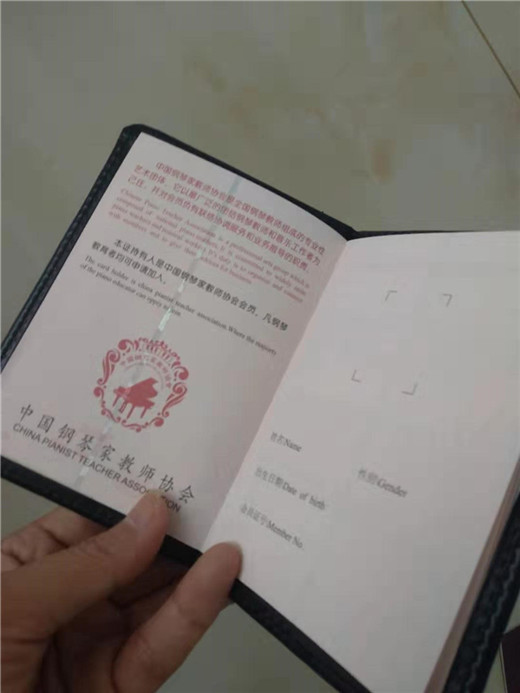 中国钢琴家教师协会是全国钢琴教师组成的专业性
艺术团体，它以最广泛的团结钢琴教师和音乐工作者为
己任，并对会员负有联络协调服务和业务指导的职责
本证持有人是中国钢琴家教师协会会员，凡钢琴
教育者均可申请加入。
The card holder is china pianist teacher association. Where the majority
of the piano educator can apply to join.
中国钢琴家教师协会
CHINA PIANIST TEACHER ASSOCIATION
姓名Name
性别Gender
出生日期Date of birth
会员证号Member No.